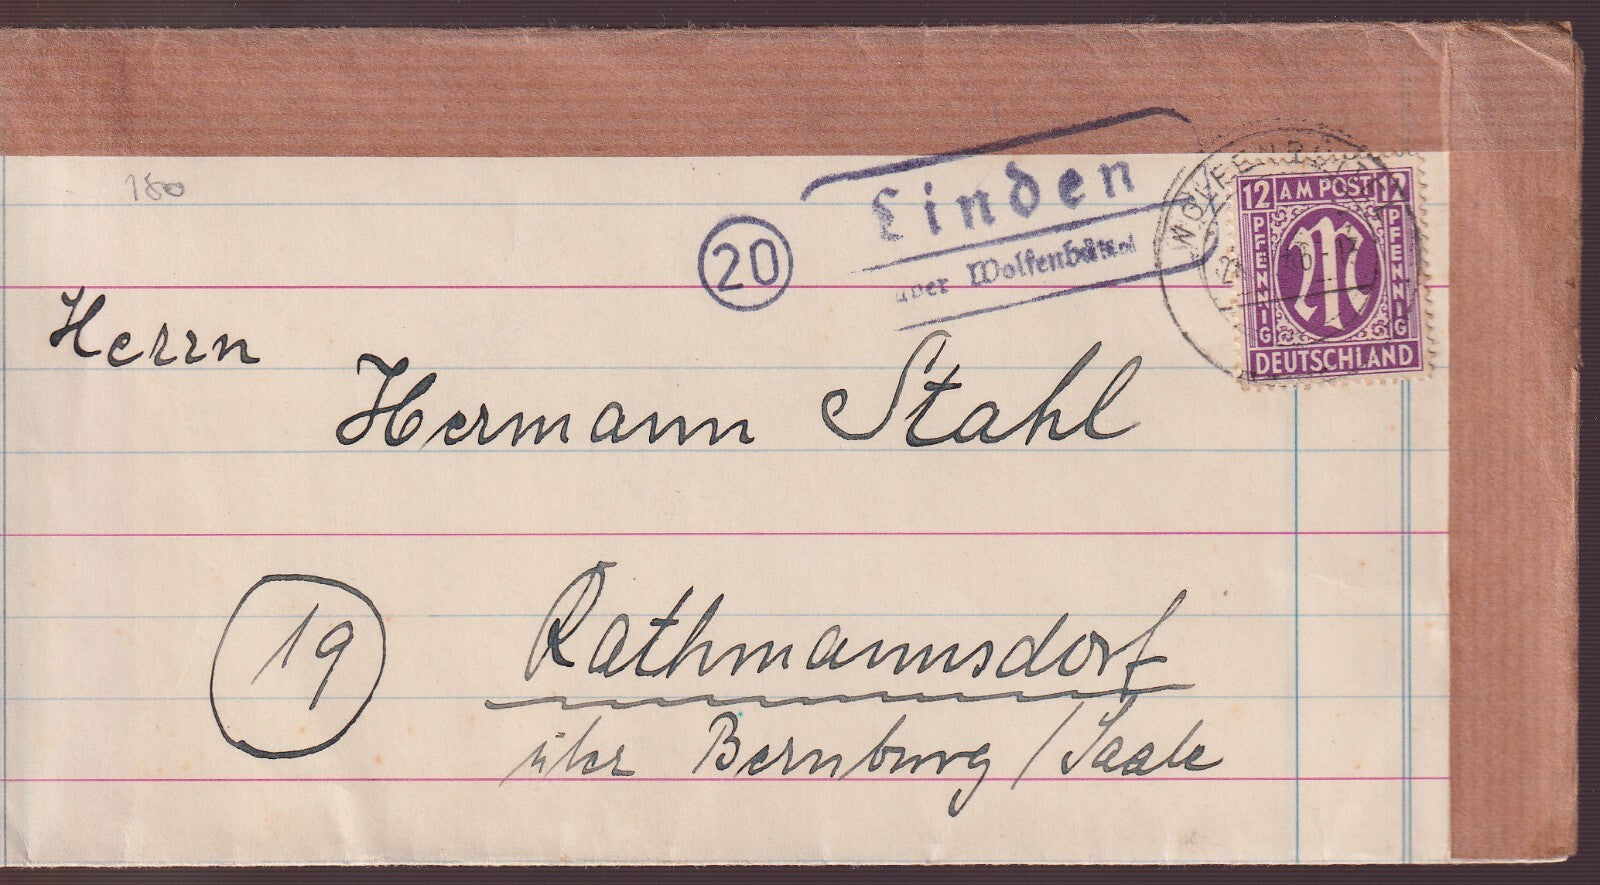 180
Linden
20
über Wolfenbüttel
12 AM POST 12
PFENNIG
PFENNIG
DEUTSCHLAND
Herrn
Hermann Stahl
19
Rathmannsdorf
über Bernburg / Saale